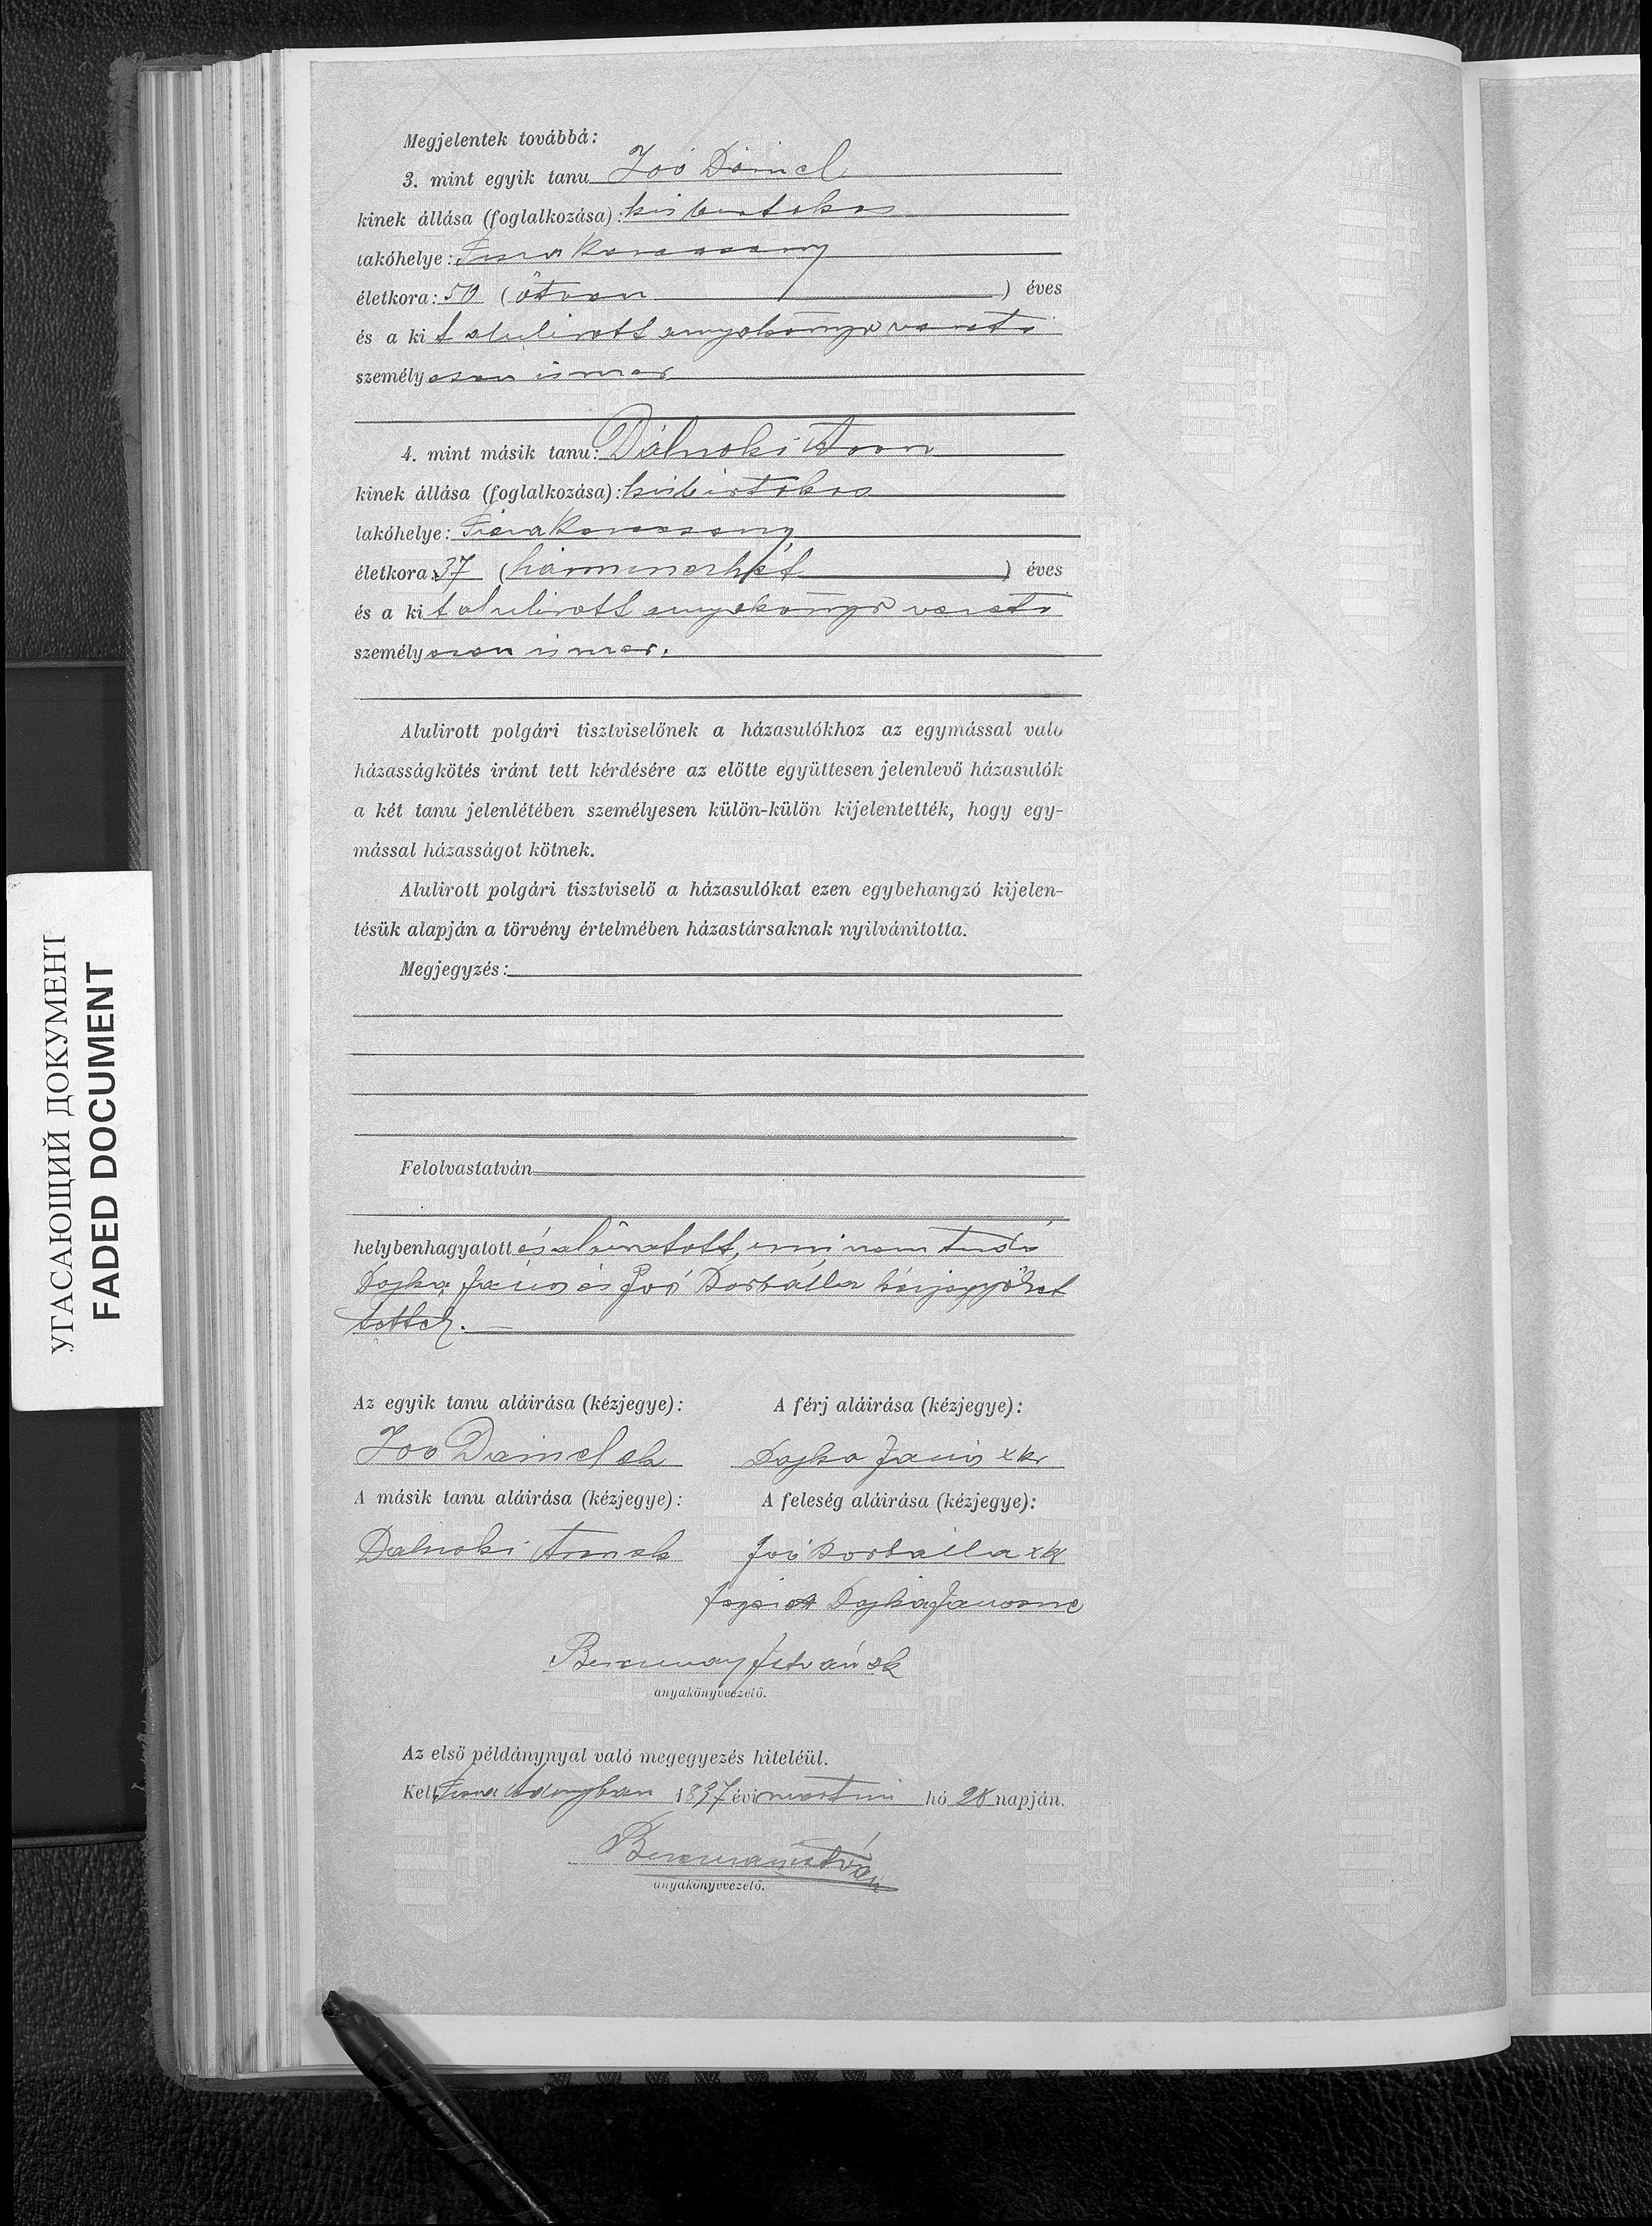 Megjelentek továbbá:
3. mint egyik tanu Joó Dániel
kinek állása (foglalkozása): kisbirtokos
lakóhelye: Tisza
életkora: 50 (ötven) éves
és a ki t alulirott anyakönyvvezető
személyesen ismer
4. mint másik tanu: Dálnoki Áron
kinek állása (foglalkozása): kisbirtokos
lakóhelye: Tisza
életkora: 37 (harminczhét) éves
és a ki t alulirott anyakönyvvezető
személyesen ismer.
Alulirott polgári tisztviselőnek a házasulókhoz az egymással való
házasságkötés iránt tett kérdésére az előtte együttesen jelenlevő házasulók
a két tanu jelenlétében személyesen külön-külön kijelentették, hogy egy-
mással házasságot kötnek.
Alulirott polgári tisztviselő a házasulókat ezen egybehangzó kijelen-
tésük alapján a törvény értelmében házastársaknak nyilvánitotta.
Megjegyzés:
Felolvastatván
helybenhagyatott és aláiratott, irni nem tudó
Dojka János és Joó Borbálla kézjegyöket
tettek.
Az egyik tanu aláirása (kézjegye): A férj aláirása (kézjegye):
Joó Dániel sk Dojka János xkv
A másik tanu aláirása (kézjegye): A feleség aláirása (kézjegye):
Dalnoki Áron sk Joó Borbálla xkv
Dojka Jánosné
István sk
anyakönyvvezető.
Az első példánynyal való megegyezés hiteléül.
Kelt 1897 évi martius hó 28 napján.
István
anyakönyvvezető.
УГАСАЮЩИЙ ДОКУМЕНТ
FADED DOCUMENT